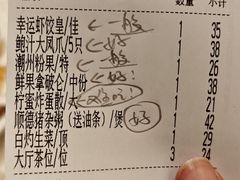 数量 小计
幸运虾饺皇/佳 ← 一般 1 35
鲍汁大凤爪/5只 ← 好 1 38
潮州粉果/特 ← 一般 1 26
鲜果拿破仑/中份 ← 好! 1 38
柠蜜炸蛋散/大 ← 好吃! 1 21
顺德猪杂粥（送油条）/煲 好 1 42
白灼生菜/顶 1 29
大厅茶位/位 3 24